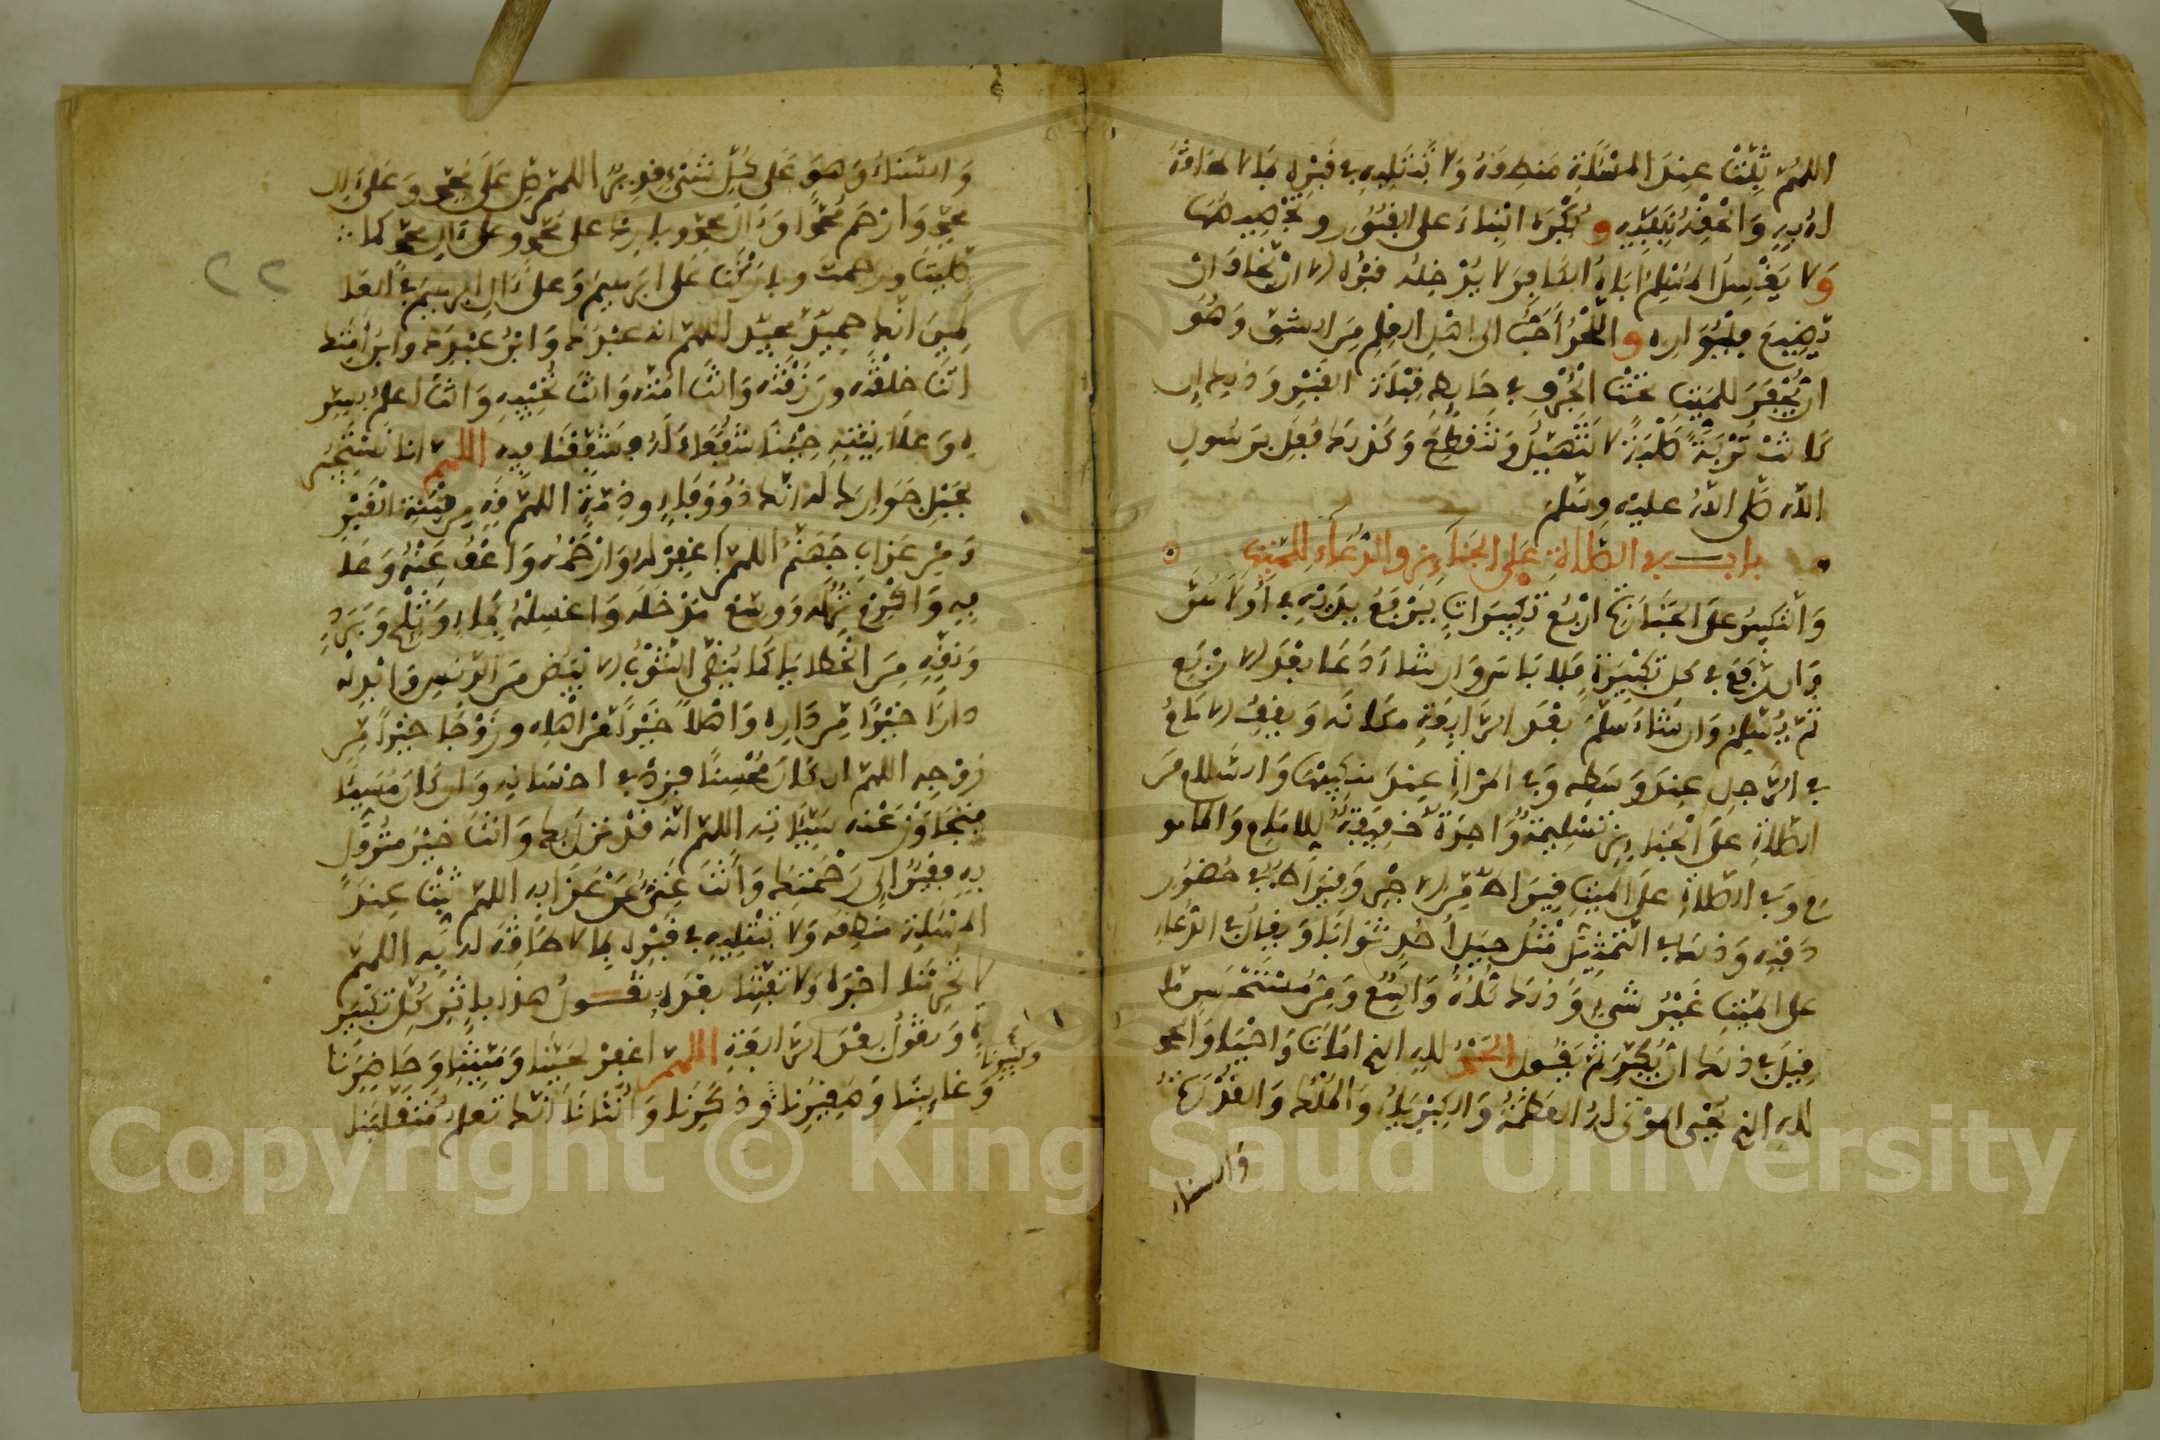 اللهم ثبت عند المسئلة منطقه ولا تبتليه في قبره بما لا طاقة
له به والحقه بنبيه ويكره البناء على القبور وتجصيصها
ولا يغسل المسلم اباه الكافر ولا يدخله قبره الا ان يخاف ان
يضيع فليواره واللحد أحب الى اهل العلم من الشق وهو
ان يحفر للميت تحت الجرف في حايط قبلة القبر وذلك ان
كانت تربة صلبة لا تتهيل ولا تتقطع وكذلك فعل برسول
الله صلى الله عليه وسلم
باب في الصلاة على الجنايز والدعاء للميت
والتكبير على الجنازة اربع تكبيرات يرفع يديه في أولاهن
وان رفع في كل تكبيرة فلا باس وان شاء دعا بعد الاربع
ثم يسلم وان شاء سلم بعد الرابعة مكانه ويقف الامام
في الرجل عند وسطه وفي المرأة عند منكبيها والسلام من
الصلاة على الجنايز تسليمة واحدة خفيفة للامام والمامو
م وفي الصلاة على الميت قيراط من الاجر وقيراط في حضور
دفنه وذلك في التمثيل مثل جبل أحد ثوابا ويقال في الدعاء
على الميت غير شيء وذلك كله واسع ومن مستحسن ما
قيل في ذلك ان يكبر ثم يقول الحمد لله الذي امات واحيا والحمد
لله الذي يحيي الموتى له العظمة والكبرياء والملك والقدرة
والسناء
والسناء وهو على كل شيء قدير اللهم صل على محمد وعلى ال
محمد وارحم محمدا وءال محمد وبارك على محمد وعلى ءال محمد كما
صليت ورحمت وباركت على ابرهيم وعلى ءال ابرهيم في العا
لمين انك حميد مجيد اللهم انه عبدك وابن عبدك وابن أمتك
انت خلقته ورزقته وانت امته وانت تحييه وانت اعلم بسر
ه وعلانيته جئناك شفعاء له فشفعنا فيه اللهم انا نستجير
بحبل جوارك له انك ذو وفاء وذمة اللهم قه من فتنة القبر
ومن عذاب جهنم اللهم اغفر له وارحمه واعف عنه وعا
فه واكرم نزله ووسع مدخله واغسله بماء وثلج وبرد
ونقه من الخطايا كما ينقى الثوب الابيض من الدنس وابدله
دارا خيرا من داره واهلا خيرا من اهله وزوجا خيرا من
زوجه اللهم ان كان محسنا فزد في احسانه وان كان مسيئا
فتجاوز عن سيئاته اللهم انه قد نزل بك وانت خير منزول
به فقير الى رحمتك وأنت غني عن عذابه اللهم ثبت عند
المسئلة منطقه ولا تبتليه في قبره بما لا طاقة له به اللهم
لا تحرمنا اجره ولا تفتنا بعده تقول هذا باثر كل تكبير
ة وتقول بعد الرابعة اللهم اغفر لحينا وميتنا وحاضرنا
وغايبنا وصغيرنا وكبيرنا وذكرنا وأنثانا انك تعلم متقلبنا
٢٢
Copyright © King Saud University